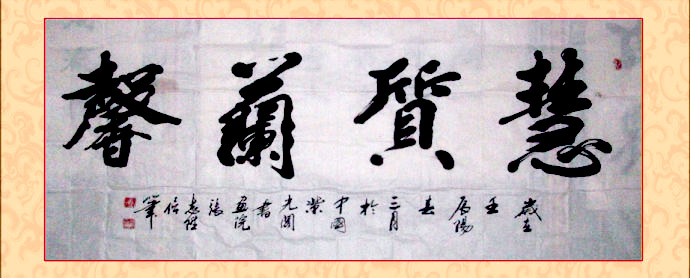 慧質蘭馨
歲在壬辰陽春三月於中國紫光閣書畫院張信筆